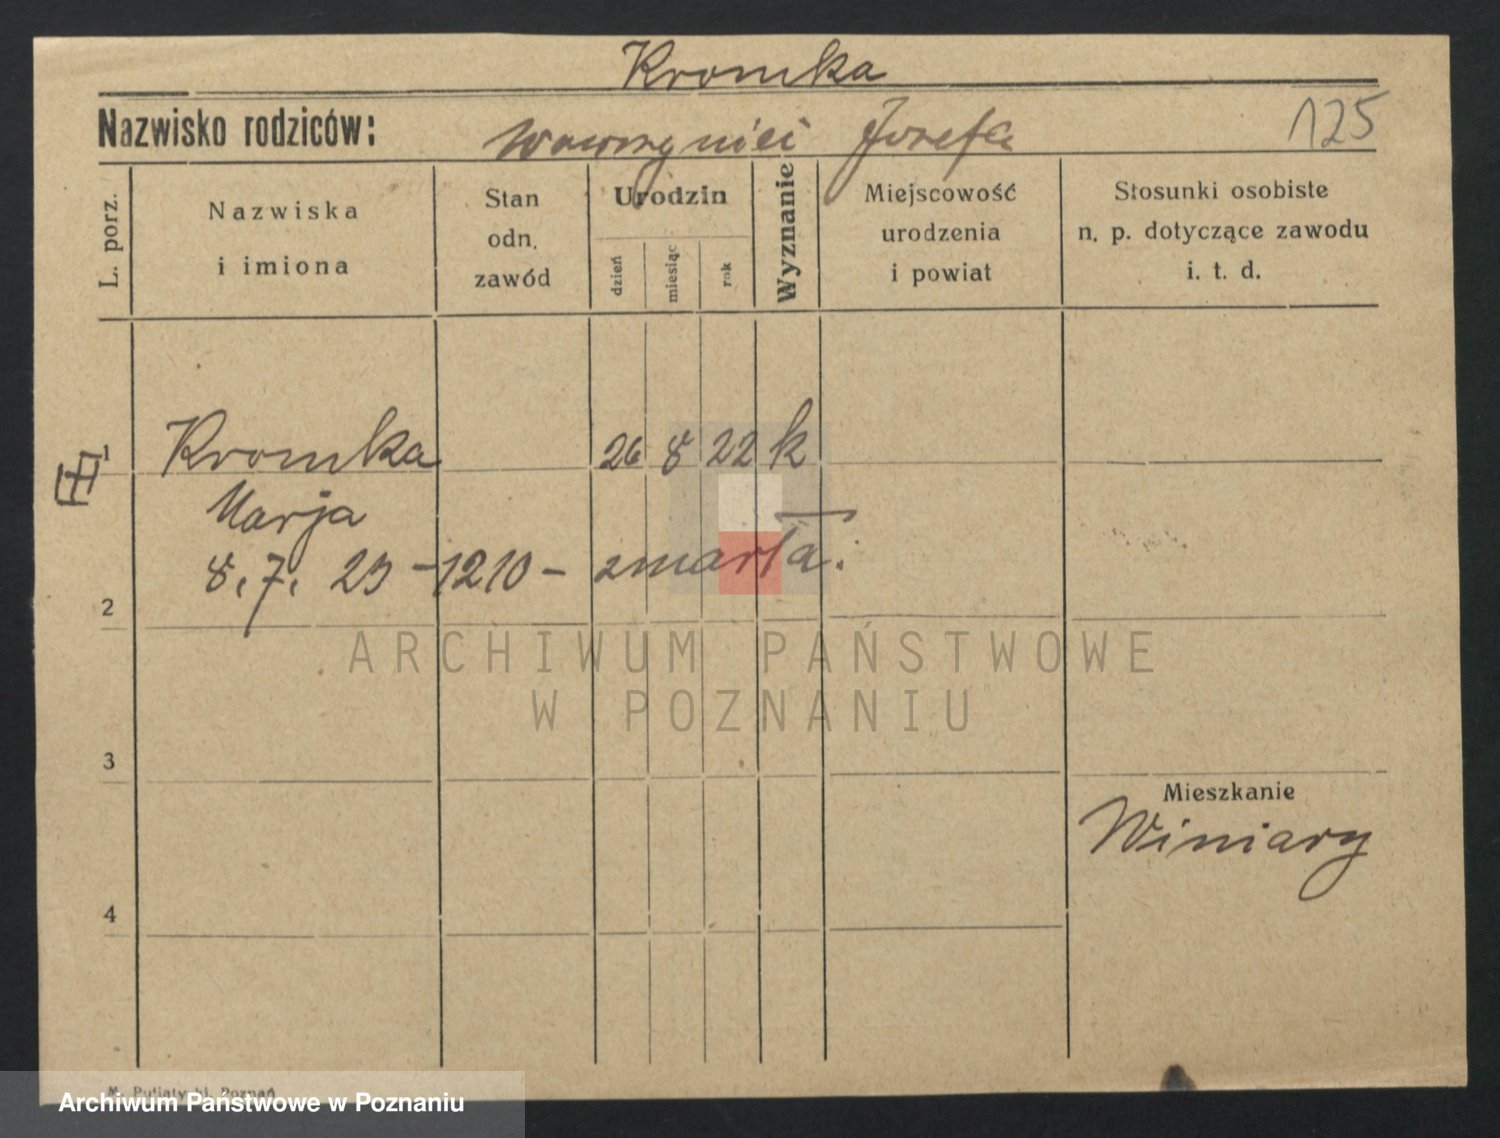 Kromka
Nazwisko rodziców:
Wawrzyniec Józefa
125
L. porz.
Nazwiska
i imiona
Stan
odn.
zawód
Urodzin
dzień
miesiąc
rok
Wyznanie
Miejscowość
urodzenia
i powiat
Stosunki osobiste
n. p. dotyczące zawodu
i. t. d.
1
Kromka 26 8 22 k
Marja
8. 7. 25 - 1210 - zmarła.
2
ARCHIWUM PAŃSTWOWE
W POZNANIU
3
Mieszkanie
Winiary
4
Poznań
Archiwum Państwowe w Poznaniu